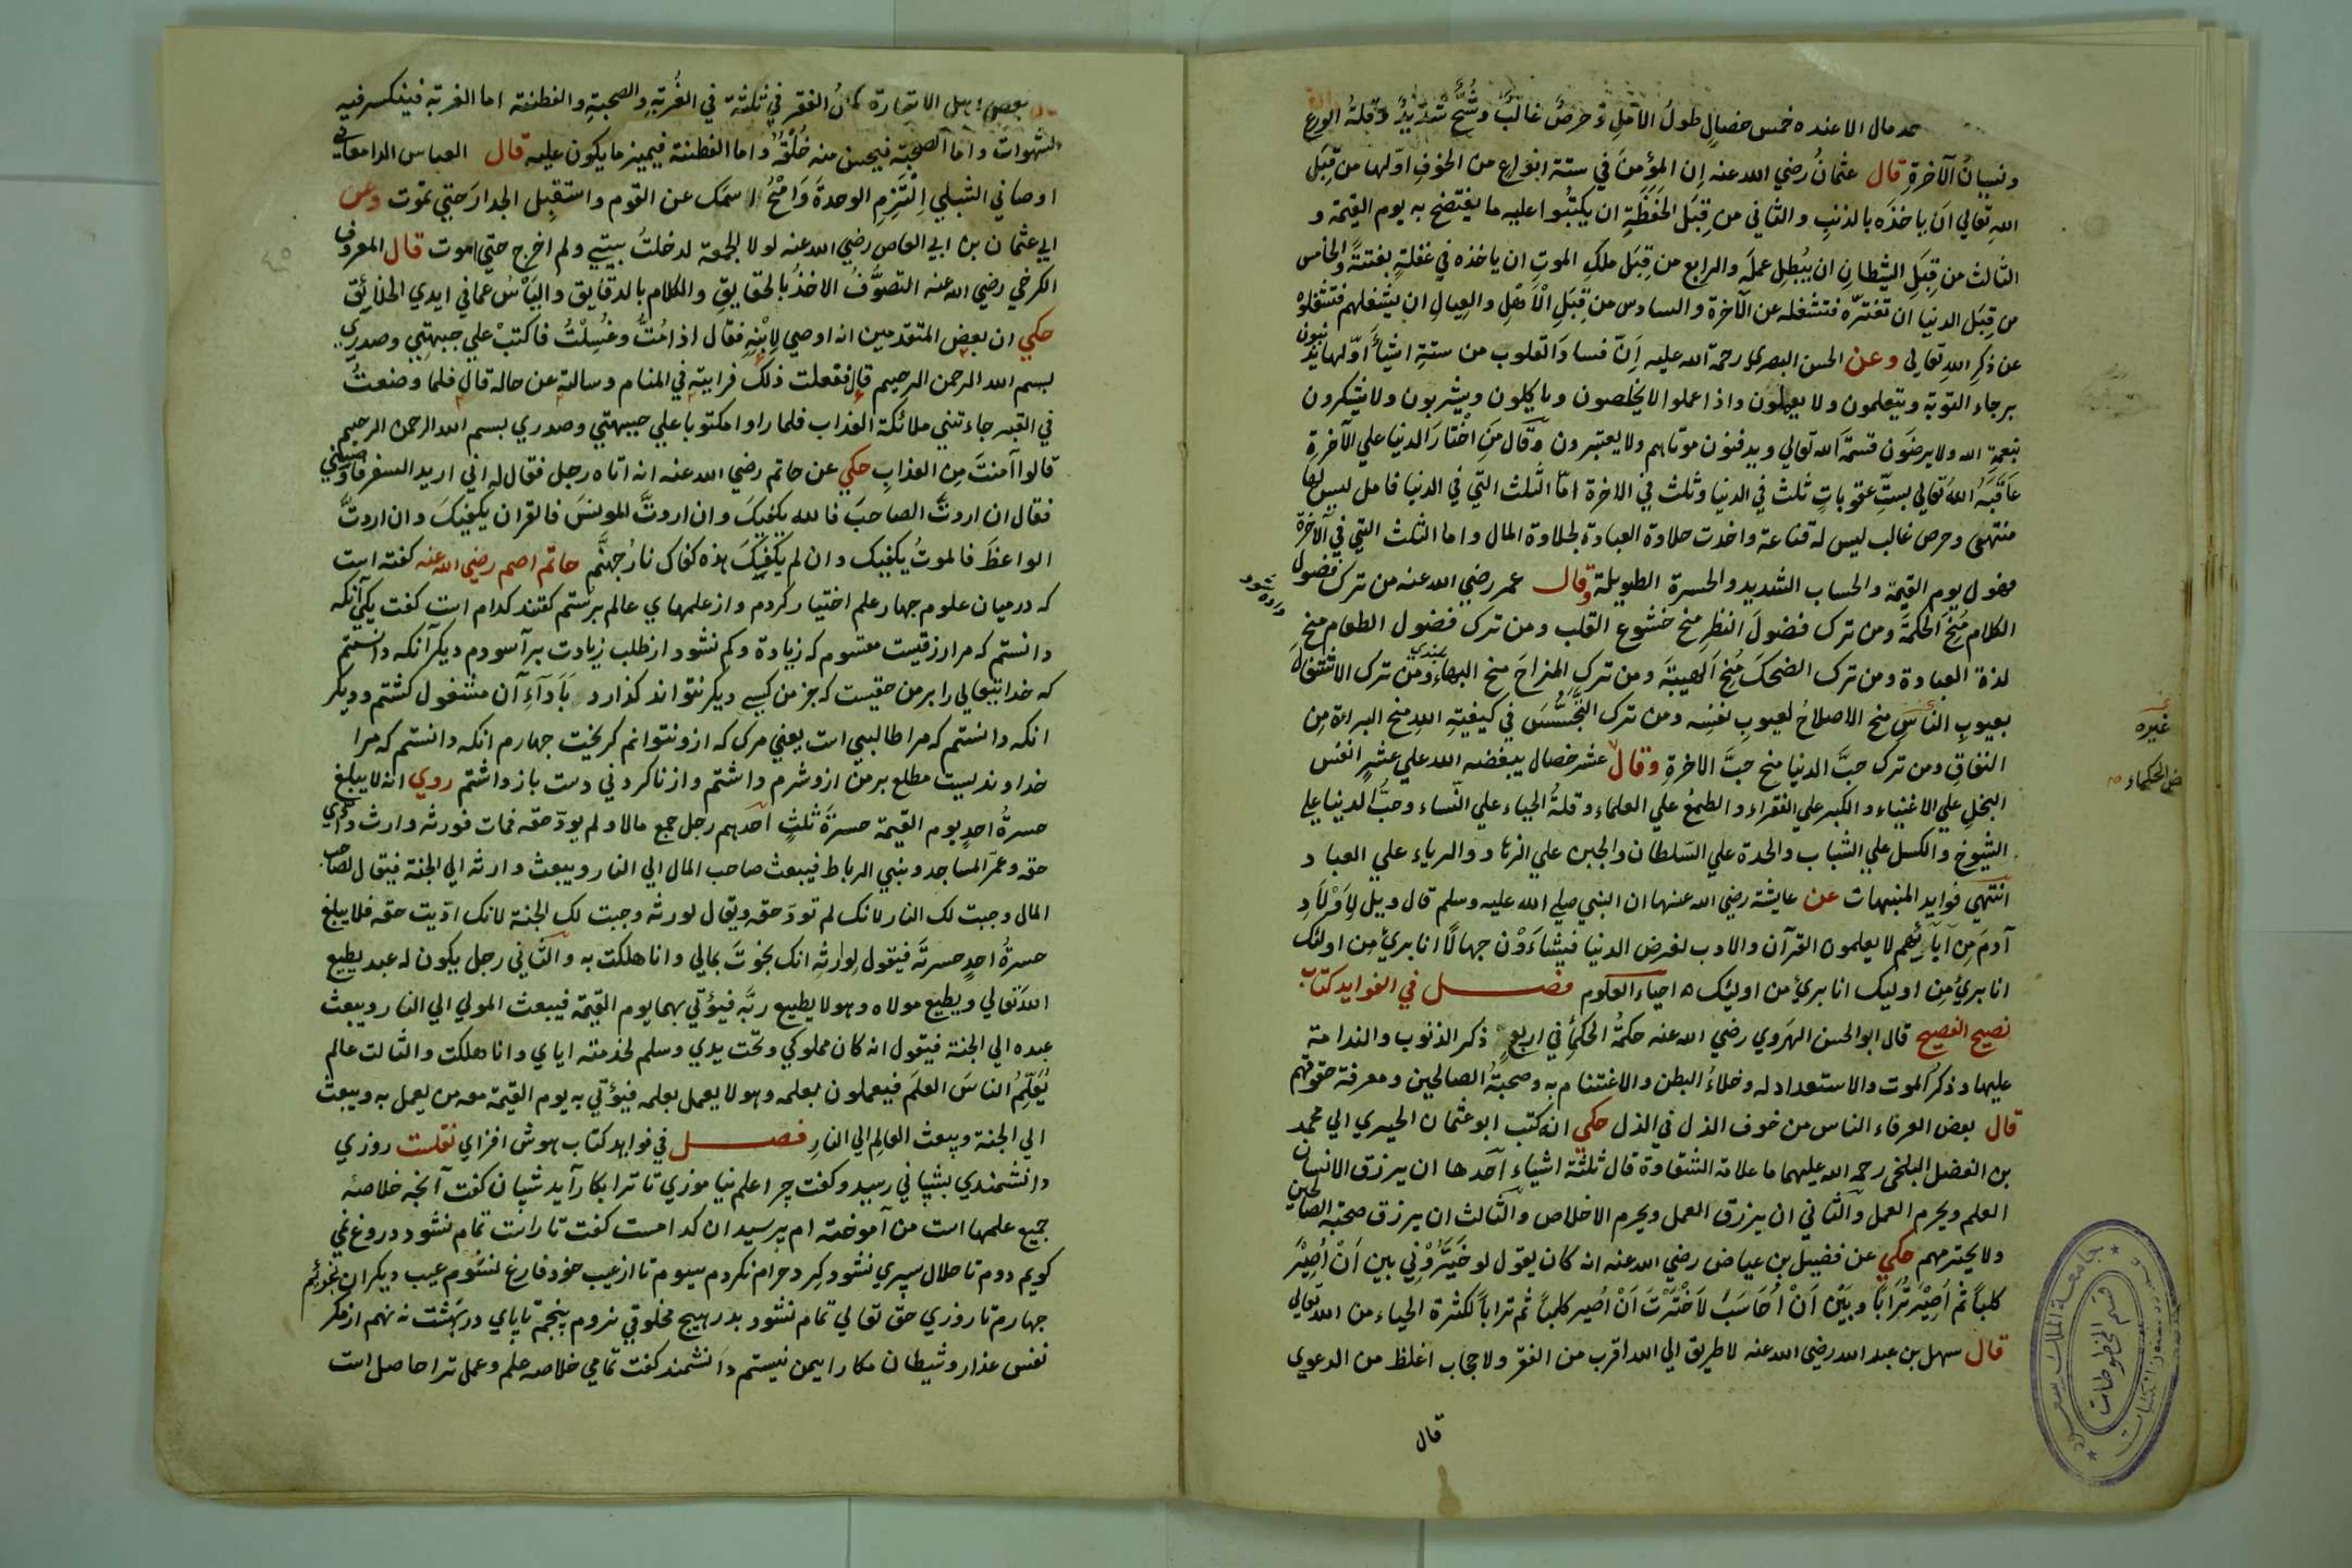 حمد مال الا عنده خمس خصال طولُ الاَمَلِ وحرصٌ غالبٌ وشُحٌّ شديدٌ وقلةُ الورع
ونسيانُ الآخرةِ قال عثمانُ رضي الله عنه إن المؤمنَ في ستة انواع من الخوفِ اوّلها من قِبَلِ
اللهِ تعالي اَن ياخذَه بالذنبِ والثاني من قِبَلِ الحَفَظَةِ ان يكتُبُوا عليه ما يفتضح به يوم القيمة و
الثالث من قِبَلِ الشيطانِ ان يُبْطِلَ عمله والرابع من قِبَلِ ملكِ الموتِ ان ياخذه في غفلةٍ بغتةً والخامس
من قِبَلِ الدنيا ان تغترّه فتشغله عن الآخرة والسادس من قِبَلِ الْاَهْلِ والعِيالِ ان يشغلهم فتشغلوه
عن ذكرِ اللهِ تعالي وعن الحسن البصري رحمة الله عليه اَنّ فسادَ القلوب من ستةِ اشياءَ اوّلها يذنبون
برجاء التوبة ويتعلمون ولا يعملون واذا عملوا لا يخلصون وياكلون ويشربون ولا يشكرون
بنعمةِ الله ولا يرضَون قسمةَ الله تعالي ويدفنون موتاهم ولا يعتبرون وقال مَن اخْتارَ الدنيا علي الآخرةِ
عَاقَبَهُ اللهُ تعالي بستّ عقوباتٍ ثلث في الدنيا وثلث في الاخرة امّا الثلث التي في الدنيا فامل ليس لها
منتهى وحرص غالب ليس له قناعة واخذت حلاوة العبادة بحلاوة المال واما الثلث التي في الآخرة
فهول يوم القيمة والحساب الشديد والحسرة الطويلة وقال عمر رضي الله عنه من ترك فضول
الكلام مُنِحَ الحكمةَ ومن ترك فضولَ النظرِ منح خشوع القلب ومن ترك فضول الطعام منح
لذة العبادة ومن ترك الضحكَ مُنِحَ الهيبةَ ومن ترك المزاحَ منح البهاء ومن ترك الاشتغالَ
بعيوبِ الناسِ منح الاصلاحُ لعيوبِ نفسِه ومن ترك التجسُّسَ في كيفيةِ اللهِ منح البراءة من
النفاقِ ومن ترك حبَّ الدنيا منح حبَّ الاخرةِ وقال عشر خصال يبغضه الله علي عشرِ انفس
البخلِ علي الاغنياء والكبر علي الفقراء والطمعُ علي العلماء وقلةُ الحياء علي النّساء وحبُّ الدنيا علي
الشيوخ والكسل علي الشباب والحدة علي السّلطان والجبن علي الزهاد والرياء علي العباد
انتهي فوايد المنبهات عن عايشة رضي الله عنها ان النبي صلي الله عليه وسلم قال ويل لِاَوْلَادِ
آدمَ مِن آبآئِهم لا يعلمون القرآن والادب لغرض الدنيا فينشاءَوْن جهالًا انا بريٌ من اولئك
انا بريٌ من اوليك انا بريٌ من اوليك ه احياء العلوم فصل في الفوايد كتاب
نصيح الفصيح قال ابو الحسن الهَروي رضي الله عنه حكمةُ الحكماءِ في اربعٍ ذكر الذنوب والندامة
عليها وذكرُ الموت والاستعداد له وخلاءُ البطن والاغتنام به وصحبةُ الصالحين ومعرفة حقوقهم
قال بعض العرفاء الناس من خوف الذل في الذل حكي انه كتب ابو عثمان الحيري الي محمد
بن الفضل البلخي رحمة الله عليهما ما علامة الشقاوة قال ثلثة اشياء اَحدها ان يرزق الانسان
العلم ويحرم العمل والثاني ان يرزق العمل ويحرم الاخلاص والثالث ان يرزق صحبة الصالحين
ولا يحترمهم حكي عن فضيل بن عياض رضي الله عنه انه كان يقول لو خَيَّرُوْنِي بين اَنْ اُصِيْرَ
كلباً ثم اُصِيْرَ تُرَاباً وبَيْن اَنْ اُحَاسَبَ لَاَخْتَرْتَ اَنْ اُصير كلباً ثم تراباً لكثرة الحياء من الله تعالي
قال سهل بن عبد الله رضي الله عنه لا طريق الي الله اقرب من الفقر ولا حجاب اغلظ من الدعوي
قال
غيره
من الحكماء
جامعة الملك سعود
قسم المخطوطات
بعض اهل الاشارة كانُ الفقر في ثلثة في الغُربةِ والصحبةِ والفطنة اما الغربة فينكسر فيه
الشهوات واَما الصحبة فيحسن منه خُلْقُهُ واما الفطنة فيميز ما يكون عليه قال العباس الدامغاني
اوصاني الشبلي اِلْتَزِمِ الوحدةَ وَامْحُ اسمك عن القوم واستقبل الجدارَ حتي تموت وعن
ابي عثمان بن ابي العاص رضي الله عنه لولا الجمعة لدخلتُ بيتي ولم اخرج حتي اموت قال المعروف
الكرخي رضي الله عنه التصوُّفُ الاخذُ بالحقايقِ والكلام بالدقايق واليَأْسُ عما في ايدي الخلائِق
حكي ان بعض المتقدمين انه اوصي لِابْنِهِ فقال اذا مُتُّ وغُسِلْتُ فاكتبْ علي جبهتي وصدري
بسم الله الرحمن الرحيم قال ففعلت ذلك فرايته في المنام وسالته عن حاله قال فلما وضعتُ
في القبر جاءتني ملائكة العذاب فلما راوا مكتوبا علي جبهتي وصدري بسم الله الرحمن الرحيم
قالوا آمنتَ مِن العذابِ حكي عن حاتم رضي الله عنه انه اتاه رجل فقال له اني اريد السفر فاوصيني
فقال ان اردتَّ الصاحبَ فالله يكفيكَ وان اردتَّ المونسَ فالقران يكفيكَ وان اردتَّ
الواعظَ فالموتُ يكفيك وان لم يكفِيكَ هذه كفاك نارُ جهنَّم حاتم اصم رضي الله عنه كفته است
كه درميان علوم جهار علم اختيار كردم واز علمهاي عالم برستم كفتند كدام است كفت يكي آنكه
دانستم كه مرا رزقيست مقسوم كه زياده وكم نشود از طلب زيادت برآسودم ديكر آنكه دانستم
كه خدايتعالي را بر من حقيست كه جز من كسي ديكر نتواند كذارد بَاَدَآءِ آن مشغول كشتم وديكر
انكه دانستم كه مرا طالبي است يعني مرك كه ازو نتوانم كريخت جهارم انكه دانستم كه مرا
خداونديست مطلع بر من ازو شرم داشتم واز ناكردني دست باز داشتم روي انه لا يبلغ
حسرةُ احدٍ يوم القيمة حسرةَ ثلثٍ اَحدهم رجل جمع مالا ولم يودّ حقه فمات فورثه وارث وادي
حقه وعمر المساجد وبني الرباط فيبعث صاحب المال الي النار ويبعث وارثه الي الجنة فيقال لصاحب
المال وجبت لك النار لانك لم تودّ حقه ويقال لورثه وجبت لك الجنة لانك ادّيت حقه فلا يبلغ
حسرةُ احدٍ حسرتَه فيقول لوارثه انك نجوتَ بمالي وانا هلكت به والثاني رجل يكون له عبد يطيع
اللهَ تعالي ويطيع مولاه وهو لا يطيع ربَّه فيؤتي بهما يوم القيمة فيبعث المولي الي النار ويبعث
عبده الي الجنة فيقول انه كان مملوكي وتحت يدي وسلم لخدمته اياي وانا هلكت والثالث عالم
يُعَلِّمُ الناسَ العلمَ فيعملون بعلمه وهو لا يعمل بعلمه فيؤتي به يوم القيمة معه من يعمل به ويبعث
الي الجنة ويبعث العالِم الي النارِ فصل في فوايد كتاب هوش افزاي نقلست روزي
دانشمندي بشباني رسيد وكفت چرا علم نياموزي تا ترا بكار آيد شبان كفت آنچه خلاصه
جميع علمها است من آموخته ام پرسيد ان كدامست كفت تا راست تمام نشود دروغ نمي
كويم دوم تا حلال سپري نشود كرد حرام نكردم سيوم تا از عيب خود فارغ نشوم عيب ديكران نجويم
جهارم تا روزي حق تعالي تمام نشود بدر هيچ مخلوقي نروم پنجم تا پاي در بهشت نه نهم از مكر
نفس غدار وشيطان مكار ايمن نيستم دانشمند كفت تمامي خلاصه علم وعمل ترا حاصل است